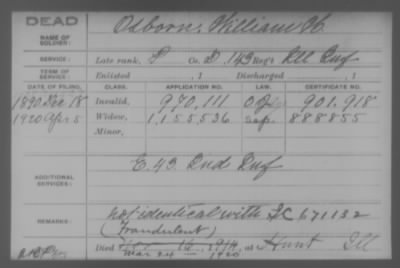 DEAD
NAME OF SOLDIER: Osborn, William H.
SERVICE: Late rank, P Co. D, 143 Reg't Ill Inf
TERM OF SERVICE: Enlisted , 1 Discharged , 1
DATE OF FILING. CLASS. APPLICATION NO. LAW. CERTIFICATE NO.
1890 Dec 18 Invalid, 970,111 901,918
1920 Apr 5 Widow, 1,155,536 888855
Minor,
ADDITIONAL SERVICES: E. 43. Ind Inf
REMARKS: Not identical with SC 671132
(Fraudulent)
Died at Hunt Ill
Mar 24 — 1920